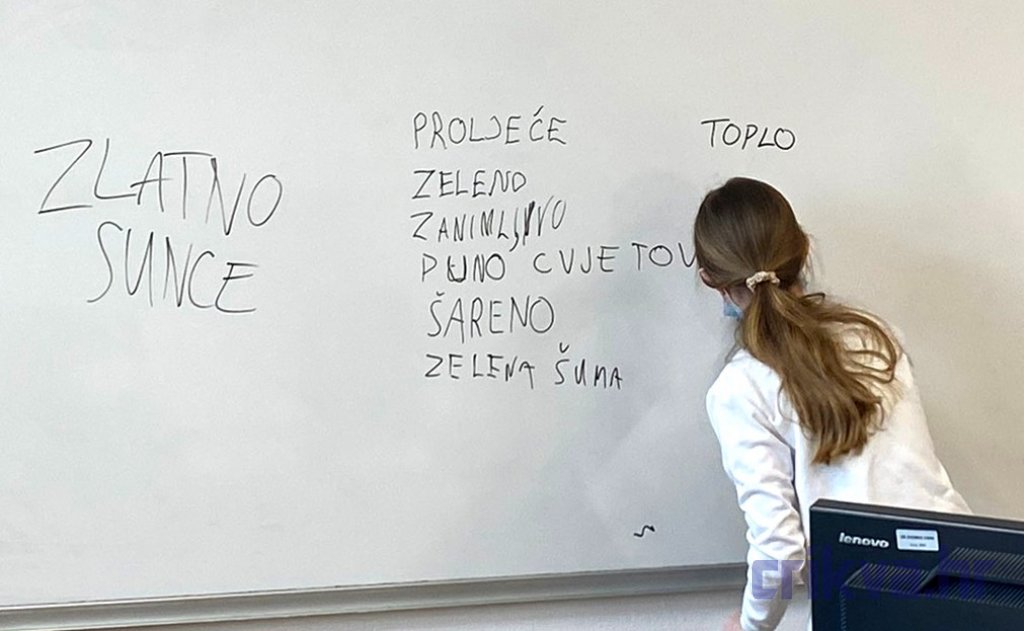 ZLATNO
SUNCE
PROLJEĆE
ZELENO
ZANIMLJIVO
PUNO CVJETOV
ŠARENO
ZELENA ŠUMA
TOPLO
lenovo